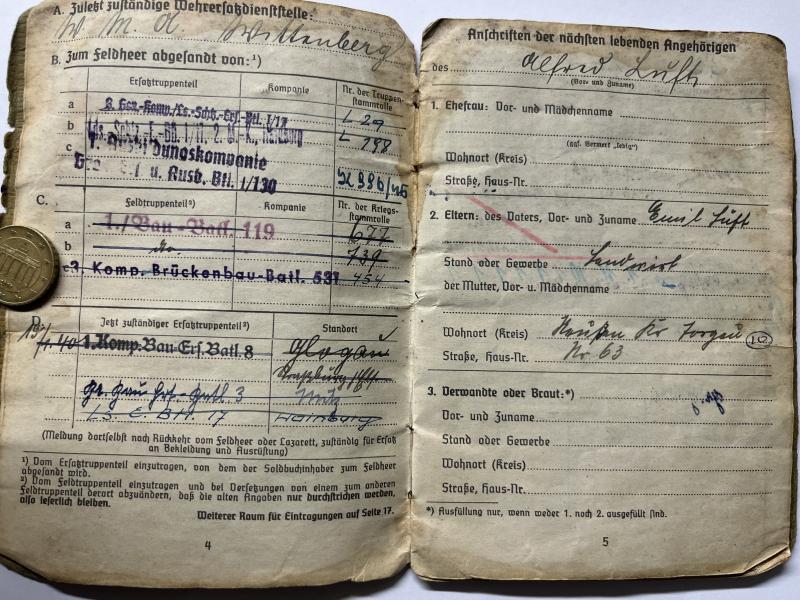 A. Zuletzt zuständige Wehrersatzdienststelle:
W. M. A. Wittenberg
B. Zum Feldheer abgesandt von:¹)
Ersatztruppenteil Kompanie Nr. der Truppenstammrolle
a Btl. I/17 L 29
b L 798
c
u. Ausb. Btl. I/130
C. Feldtruppenteil²) Kompanie Nr. der Kriegsstammrolle
a 1./Bau-Batl. 119 677
b 739
c 3. Komp. Brückenbau-Batl. 531 454
Jetzt zuständiger Ersatztruppenteil²) Standort
1. Komp. Bau-Ers. Batl. 8 Glogau
3
L.S. E. Btl. 17 Hainburg
(Meldung dortselbst nach Rückkehr vom Feldheer oder Lazarett, zuständig für Ersatz
an Bekleidung und Ausrüstung)
¹) Vom Ersatztruppenteil einzutragen, von dem der Soldbuchinhaber zum Feldheer
abgesandt wird.
²) Vom Feldtruppenteil einzutragen und bei Versetzungen von einem zum anderen
Feldtruppenteil derart abzuändern, daß die alten Angaben nur durchstrichen werden,
also leserlich bleiben.
Weiterer Raum für Eintragungen auf Seite 17.
4
Anschriften der nächsten lebenden Angehörigen
des Alfred Luft
(Vor- und Zuname)
1. Ehefrau: Vor- und Mädchenname
(ggf. Vermerk „ledig")
Wohnort (Kreis)
Straße, Haus-Nr.
2. Eltern: des Vaters, Vor- und Zuname Emil Luft
Stand oder Gewerbe Landwirt
der Mutter, Vor- u. Mädchenname
Wohnort (Kreis) Kr Torgau
Straße, Haus-Nr. Nr. 63
3. Verwandte oder Braut:*)
Vor- und Zuname
Stand oder Gewerbe
Wohnort (Kreis)
Straße, Haus-Nr.
*) Ausfüllung nur, wenn weder 1. noch 2. ausgefüllt sind.
5